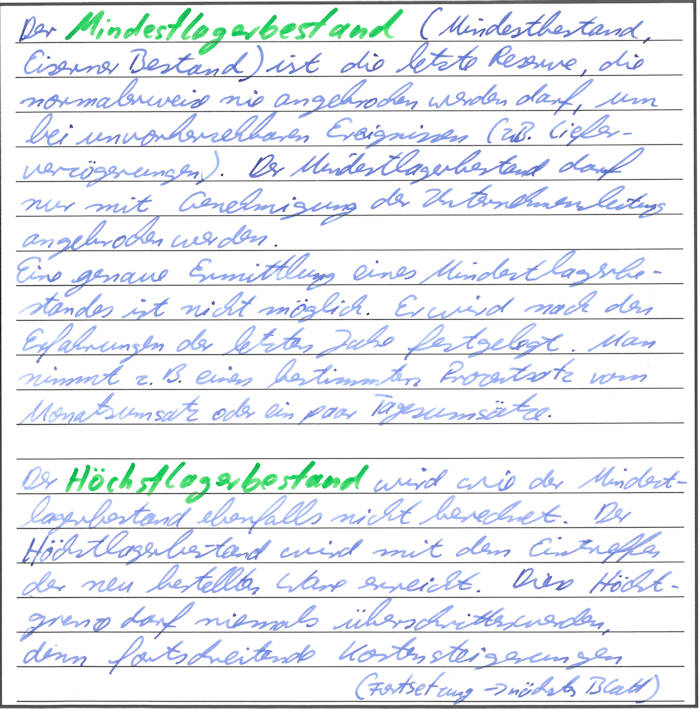 Der Mindestlagerbestand (Mindestbestand,
Eiserner Bestand) ist die letzte Reserve, die
normalerweise nie angebrochen werden darf, um
bei unvorhersehbaren Ereignissen (z.B. Liefer-
verzögerungen). Der Mindestlagerbestand darf
nur mit Genehmigung der Unternehmensleitung
angebrochen werden.
Eine genaue Ermittlung eines Mindestlagerbe-
standes ist nicht möglich. Er wird nach den
Erfahrungen der letzten Jahre festgelegt. Man
nimmt z.B. einen bestimmten Prozentsatz vom
Monatsumsatz oder ein paar Tagesumsätze.
Der Höchstlagerbestand wird wie der Mindest-
lagerbestand ebenfalls nicht berechnet. Der
Höchstlagerbestand wird mit dem Eintreffen
der neu bestellten Ware erreicht. Diese Höchst-
grenze darf niemals überschritten werden,
denn fortschreitende Kostensteigerungen
(Fortsetzung → nächstes Blatt)